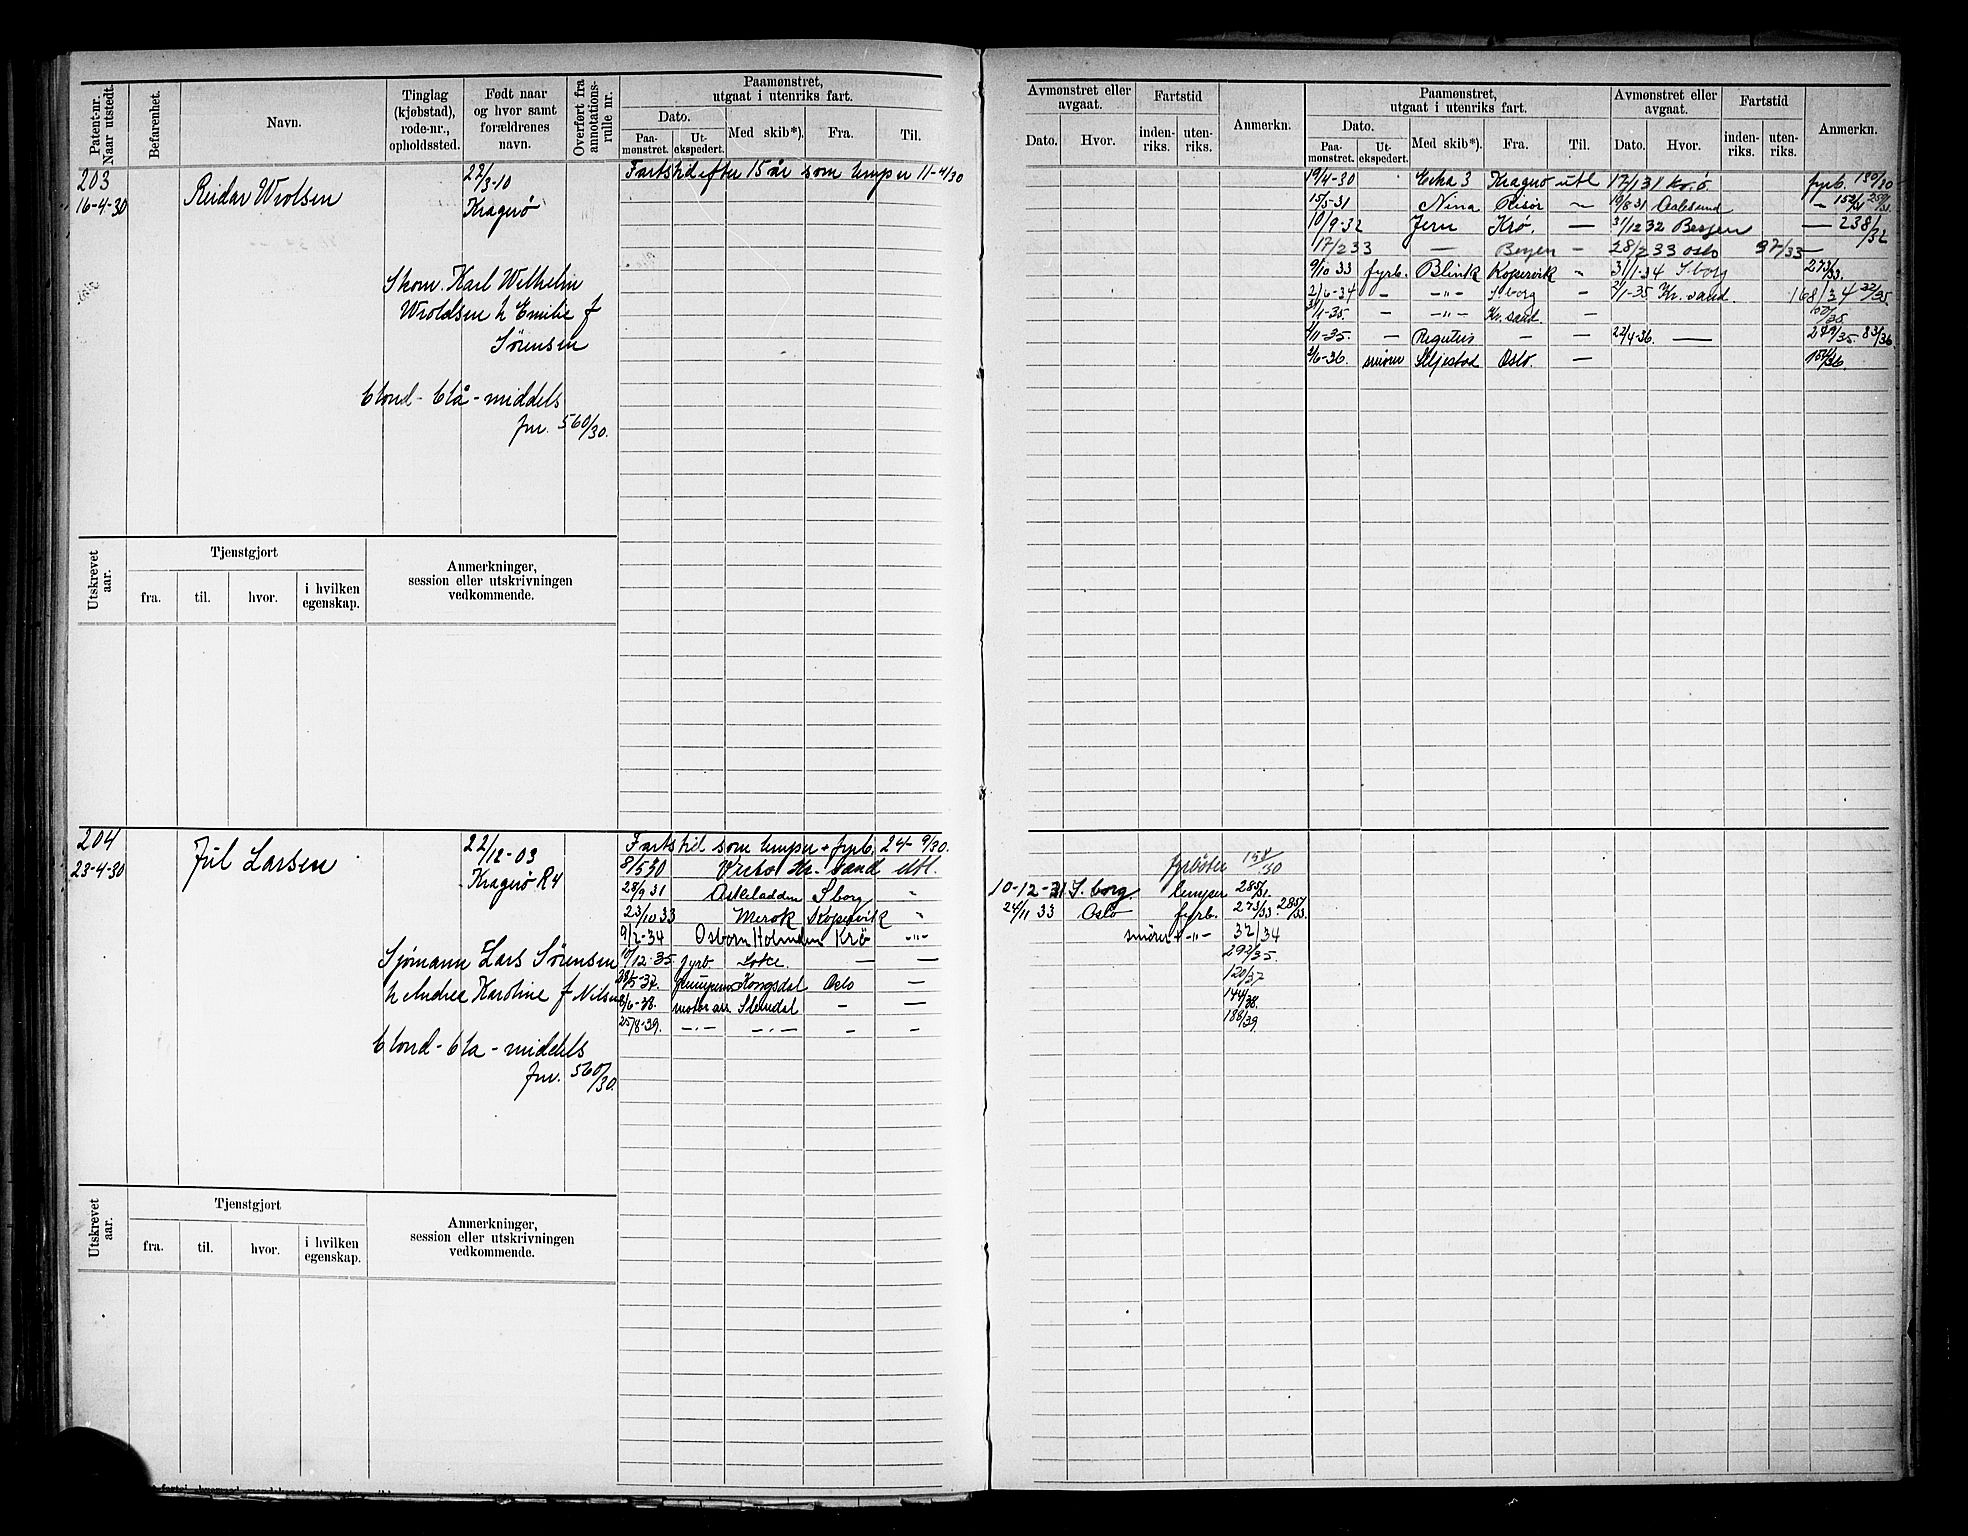 Patent-nr. Naar utstedt.
Befarenhet.
Navn.
Tinglag (kjøbstad), rode-nr., opholdssted.
Født naar og hvor samt forældrenes navn.
Overført fra annotations-rulle nr.
Paamønstret, utgaat i utenriks fart.
Dato.
Paa-mønstret.
Ut-ekspedert.
Med skib*).
Fra.
Til.
Avmønstret eller avgaat.
Dato.
Hvor.
Fartstid
inden-riks.
uten-riks.
Anmerkn.
Paamønstret, utgaat i utenriks fart.
Dato.
Paa-mønstret.
Ut-ekspedert.
Med skib*).
Fra.
Til.
Avmønstret eller avgaat.
Dato.
Hvor.
Fartstid
inden-riks.
uten-riks.
Anmerkn.
203
16-4-30
Reidar Wrolsen
22/3-10
Kragerø
Skom. Karl Wilhelm
Wroldsen h Emilie f
Sørensen
blond - blå - middels
Jnr. 560/30.
Fartstid efter 15 år som lemper 11-4/30
19/4-30 Kragerø utl 17/1 31 Kr.ø fyrb. 130/30
15/5-31 Nina Risør 19/8 31 Aalesund
10/9-32 Jern Krø. — 31/12 32 Bergen — 238/32
17/2 33 — Bergen — 28/2 33 Oslo 97/33 —
9/10 33 fyrb. Blink Kopervik - 31/1-34 S.borg 273/33.
2/6-34 - -"- S.borg - 2/1-35 Kr.sand 168/34 32/35.
-35. - -"- Kr.sand. - 100/35
2/11-35. — Regulus — — 22/4-36. — 279/35. 83/36
2/6-36. smører Oslo. — 36.
Utskrevet aar.
Tjenstgjort
fra.
til.
hvor.
i hvilken egenskap.
Anmerkninger, session eller utskrivningen vedkommende.
204
23-4-30
Jul Larsen
22/12-03
Kragerø R4
Sjømann Lars Sørensen
h Andrea Karoline f Nilsen
blond - bla - middels
Jnr. 560/30.
Fartstid som lemper + fyrb. 24- 9/30.
8/5 30 Kr. sand utl. fyrbøter 154/30
28/9 31 Askeladden S borg " 10-12-31 S. borg. lemper 285/31.
23/10 33 Merok Kopervik " 24/11 33 Oslo fyrb. 273/33. 285/33.
9/2-34 Osborn Holmden Krø -"- smører + -"- 32/34
10/12-35. fyrb Loke. — — 292/35.
28/5-37. Kongsdal Oslo — 120/37
8/6-38. motor ass Stendal - — 144/38.
25/8-39. -.- -.- - - 188/39.
Utskrevet aar.
Tjenstgjort
fra.
til.
hvor.
i hvilken egenskap.
Anmerkninger, session eller utskrivningen vedkommende.